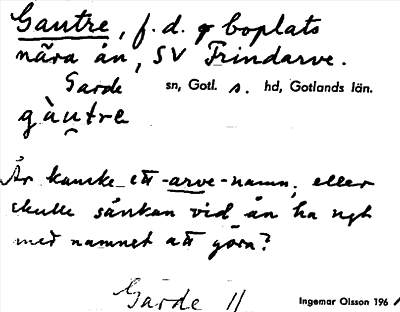 Gautre, f.d. boplats
nära ån, SV Frindarve.
Garde sn, Gotl. s. hd, Gotlands län.
gàutre
Är kanske ett -arve-namn, eller
skulle sänkan vid ån ha ngt
med namnet att göra?
Garde 11
Ingemar Olsson 196